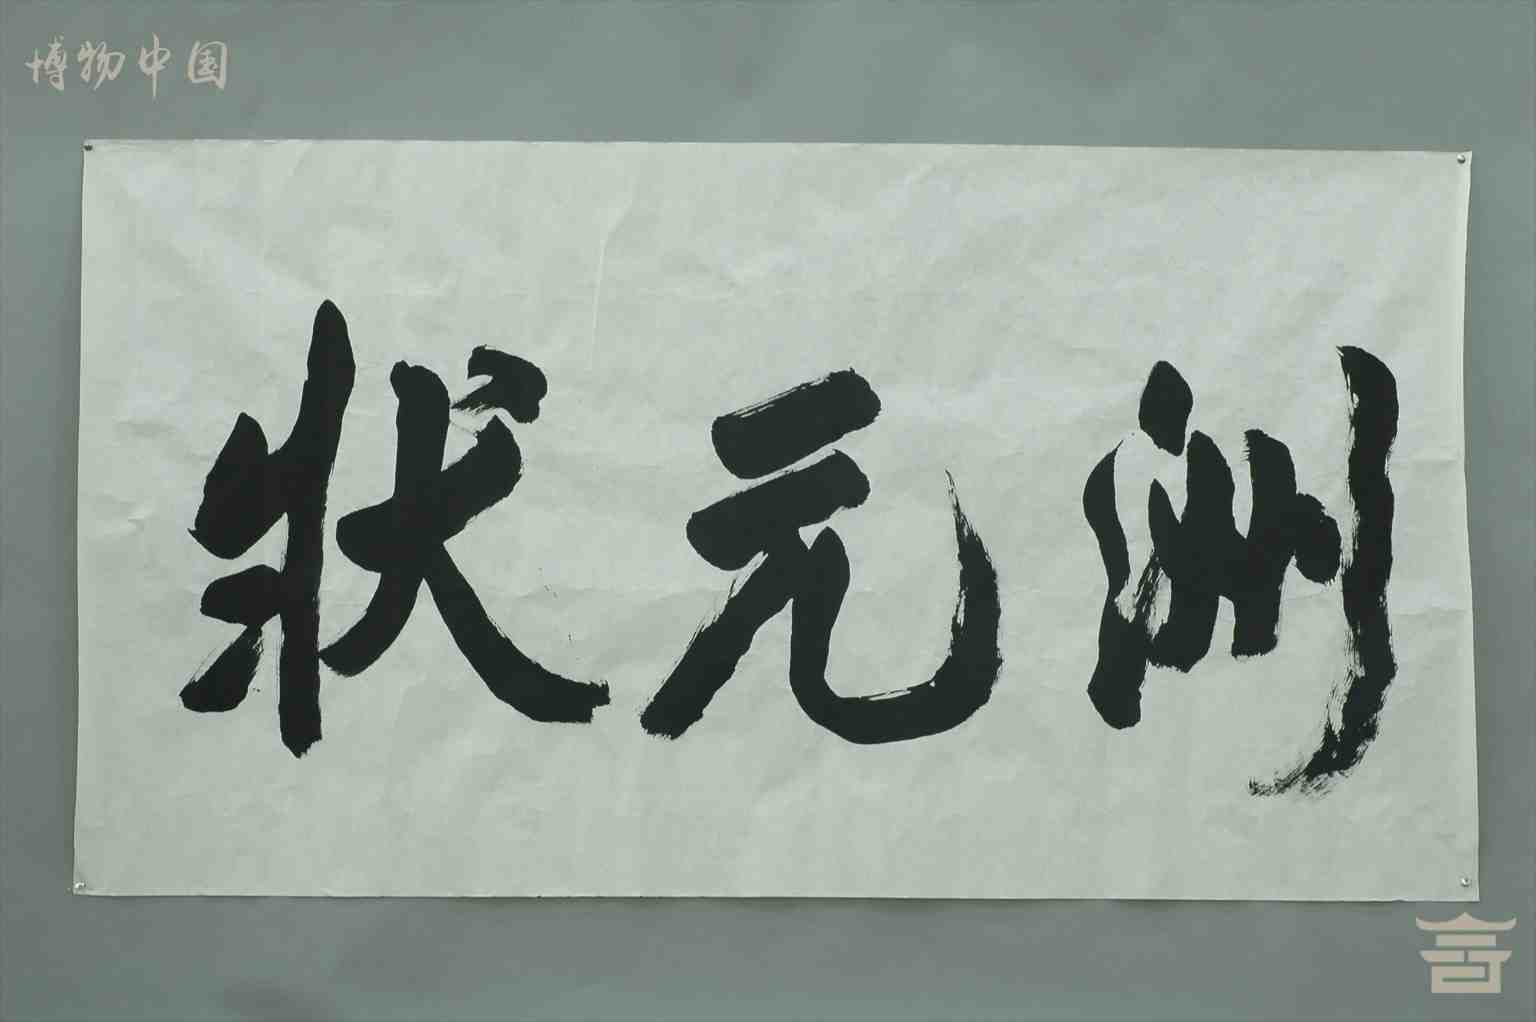 博物中国
状元洲